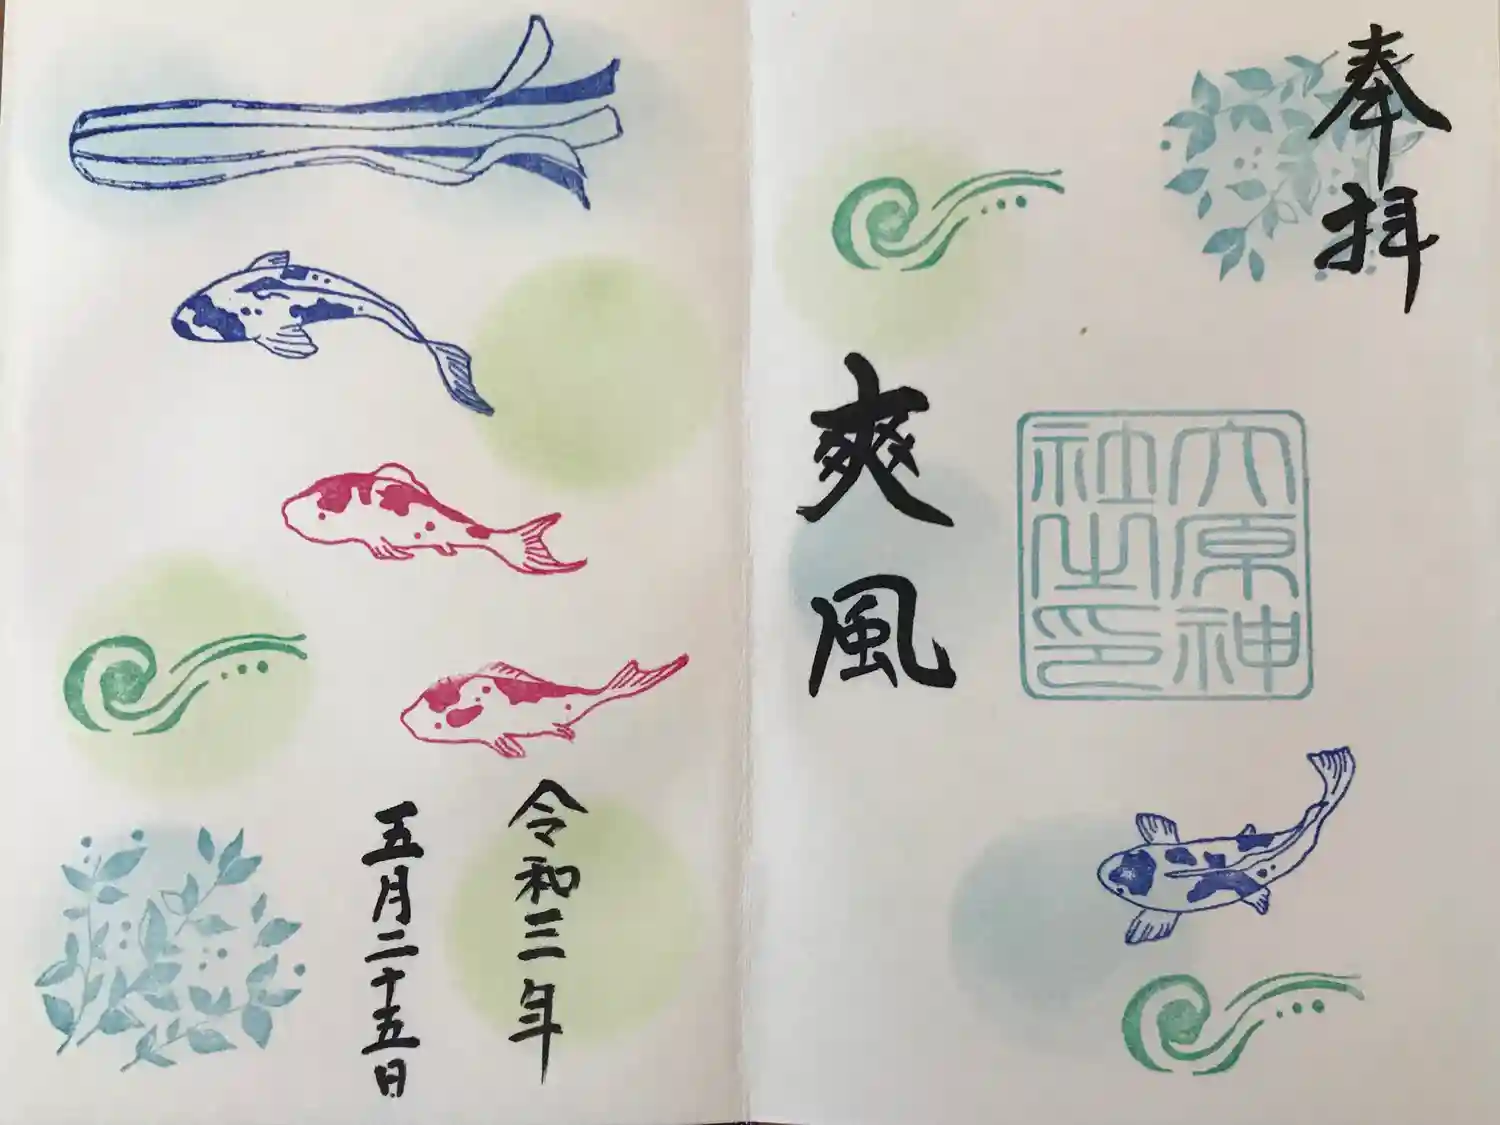 奉拝
大原神
社之印
爽風
令和三年
五月二十五日